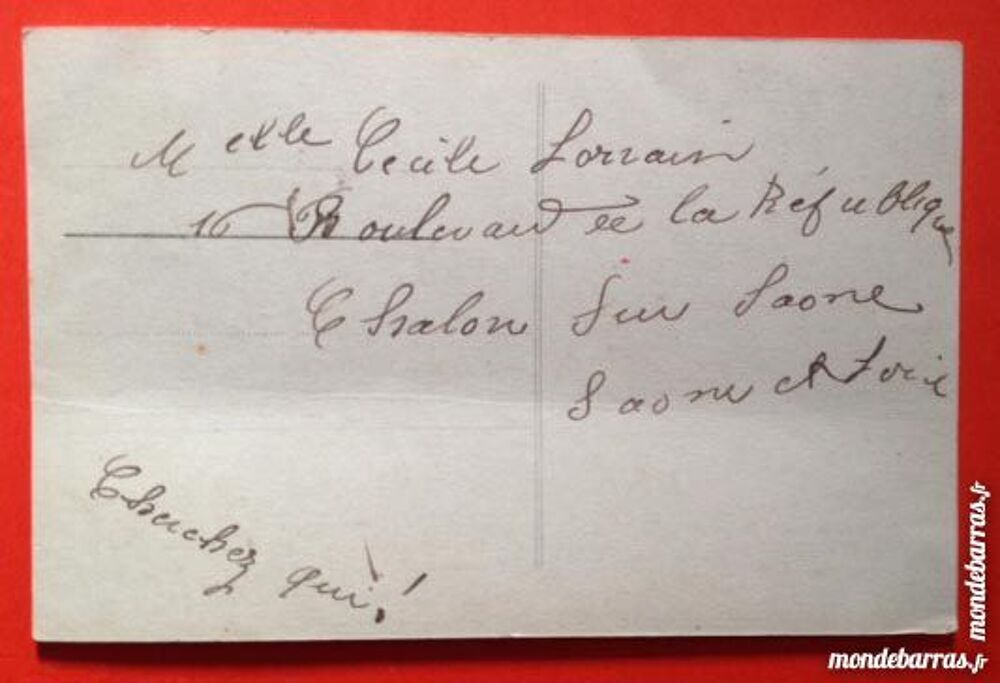 Melle Cecile Lorrain
16 Boulevard de la République
Chalon Sur Saone
Saone et Loire
Cherchez qui!
mondebarras.fr
mondebarras.fr